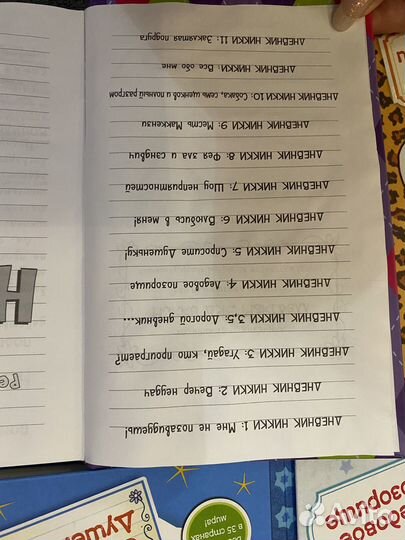 ДНЕВНИК НИККИ 1: Мне не позавидуешь!
ДНЕВНИК НИККИ 2: Вечер неудач
ДНЕВНИК НИККИ 3: Угадай, кто проиграет?
ДНЕВНИК НИККИ 3,5: Дорогой дневник...
ДНЕВНИК НИККИ 4: Ледовое позорище
ДНЕВНИК НИККИ 5: Спросите Душеньку!
ДНЕВНИК НИККИ 6: Влюбись в меня!
ДНЕВНИК НИККИ 7: Шоу неприятностей
ДНЕВНИК НИККИ 8: Фея зла и сэндвич
ДНЕВНИК НИККИ 9: Месть Маккензи
ДНЕВНИК НИККИ 10: Собака, семь щенков и полный разгром
ДНЕВНИК НИККИ: Все обо мне
ДНЕВНИК НИККИ 11: Заклятая подруга
в 35 странах
мира!
Avito